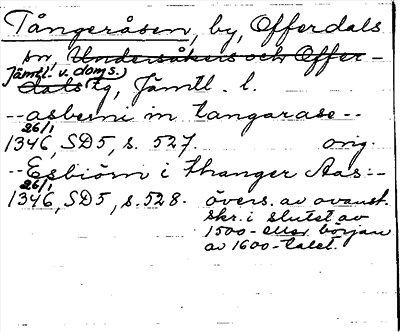 Tångeråsen, by, Offerdals
sn, Undersåkers och Offer-
Jämtl. v. doms.)
dals tg, Jämtl. l.
--asberni in tangarase--
26/1
1346, SD5, s. 527. orig.
--Esbiörn i thanger Aas--
26/1
1346, SD5, s. 528. övers. av ovanst.
skr. i slutet av
1500- eller början
av 1600-talet.